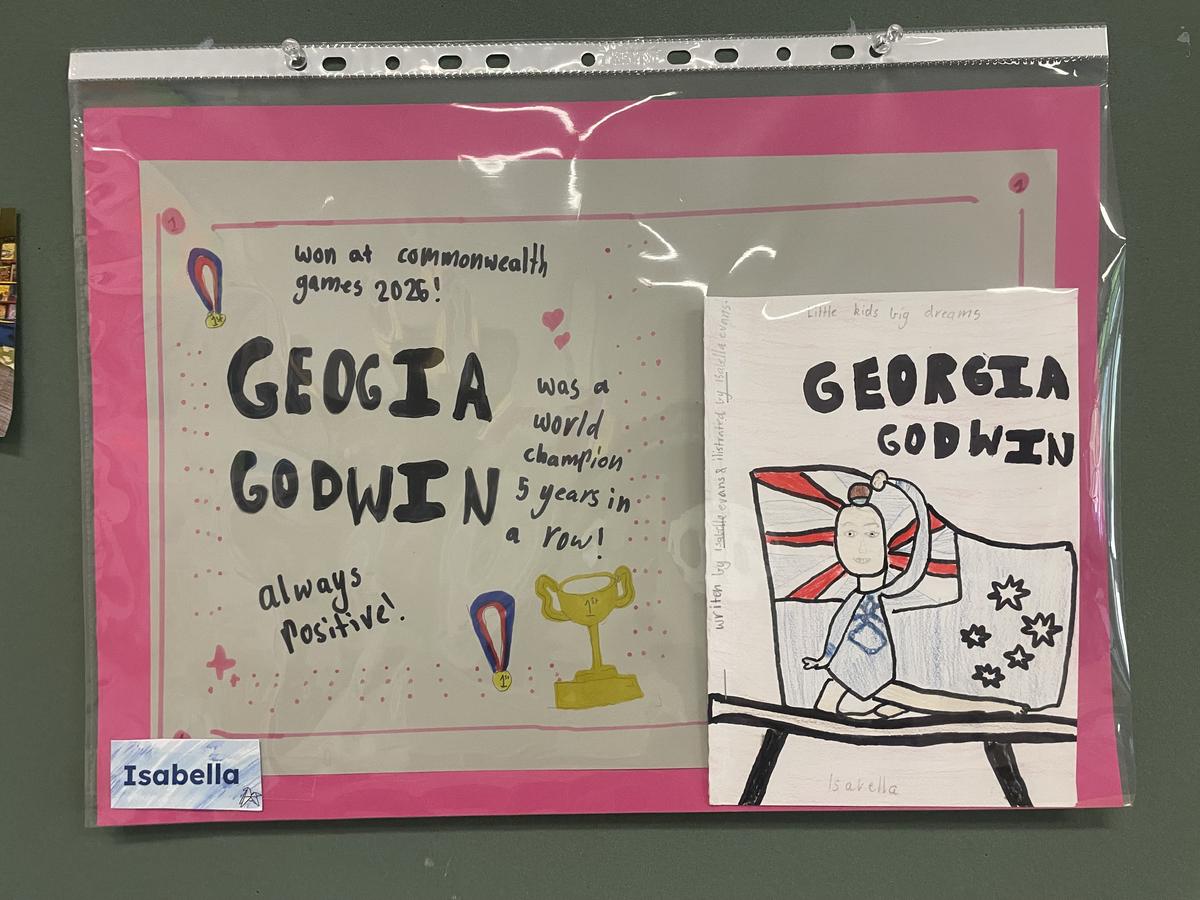 1
1
won at commonwealth
games 2026!
1st
GEOGIA
GODWIN
was a
world
champion
5 years in
a row!
always
positive!
1st
1st
Isabella
Little kids big dreams
GEORGIA
GODWIN
writen by Isabella evans & ilistrated by Isabella evans.
Isabella